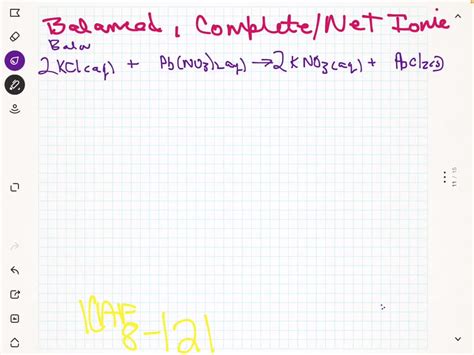 Balanced, Complete/Net Ionic
Bala
2KCl(aq) + Pb(NO3)2(aq) → 2KNO3(aq) + PbCl2(s)
11 / 15
8-121